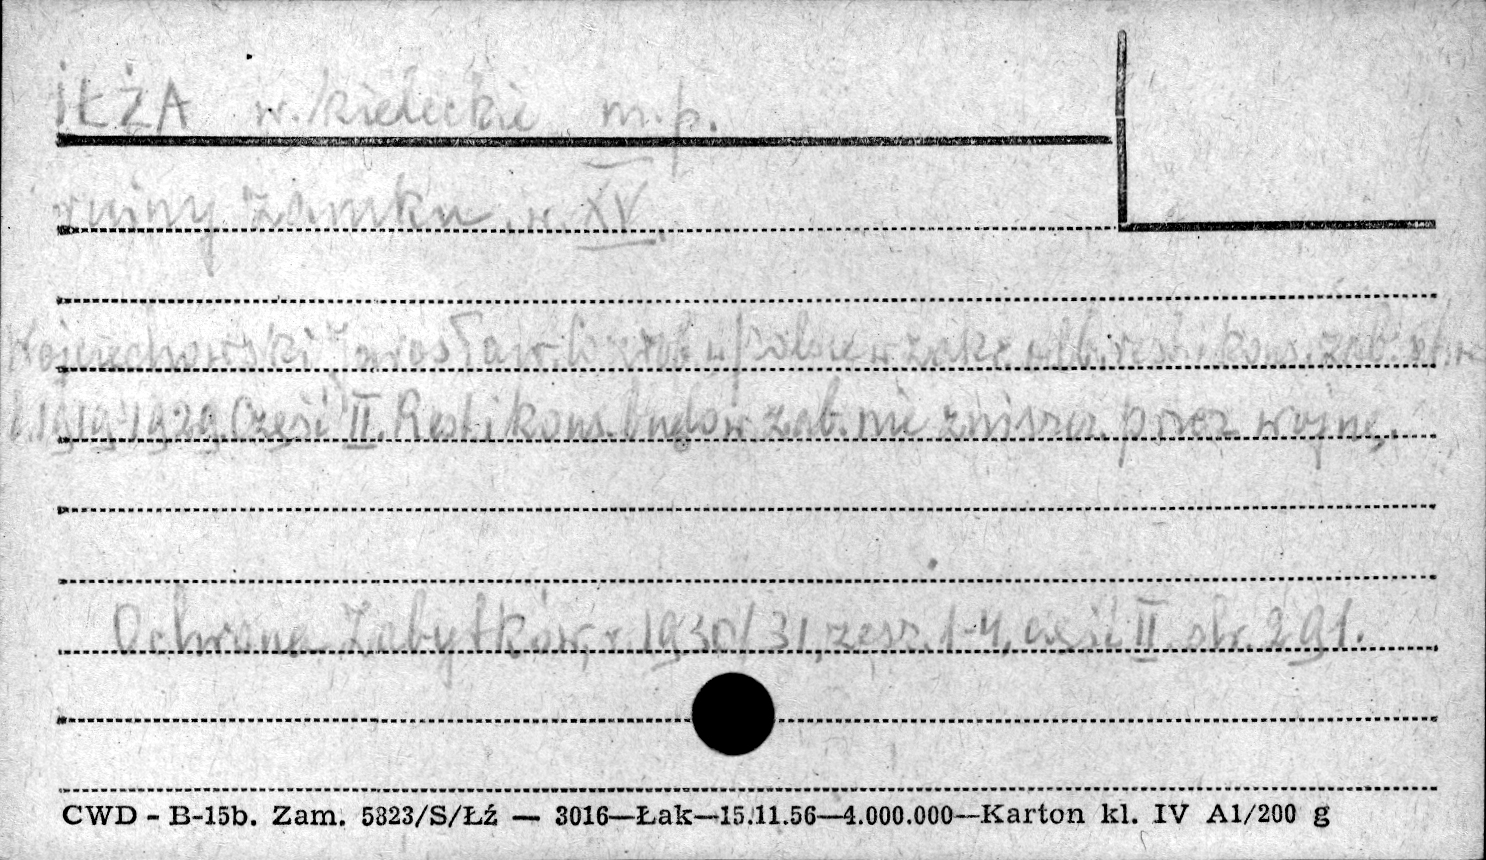 IŁŻA w. kieleckie m.p.
ruiny zamku w. XV.
Wojciechowski Jarosław. Co zrob. w Polsce w zakr. odb. rest. i kons. zab. arch. w
l. 1919-1929. Część II. Rest. i kons. budow. zab. nie zniszcz. przez wojnę.
Ochrona Zabytków, r. 1930/31, zesz. 1-4, część II. str. 291.
CWD - B-15b. Zam. 5823/S/Łź — 3016—Łak—15.11.56—4.000.000—Karton kl. IV A1/200 g